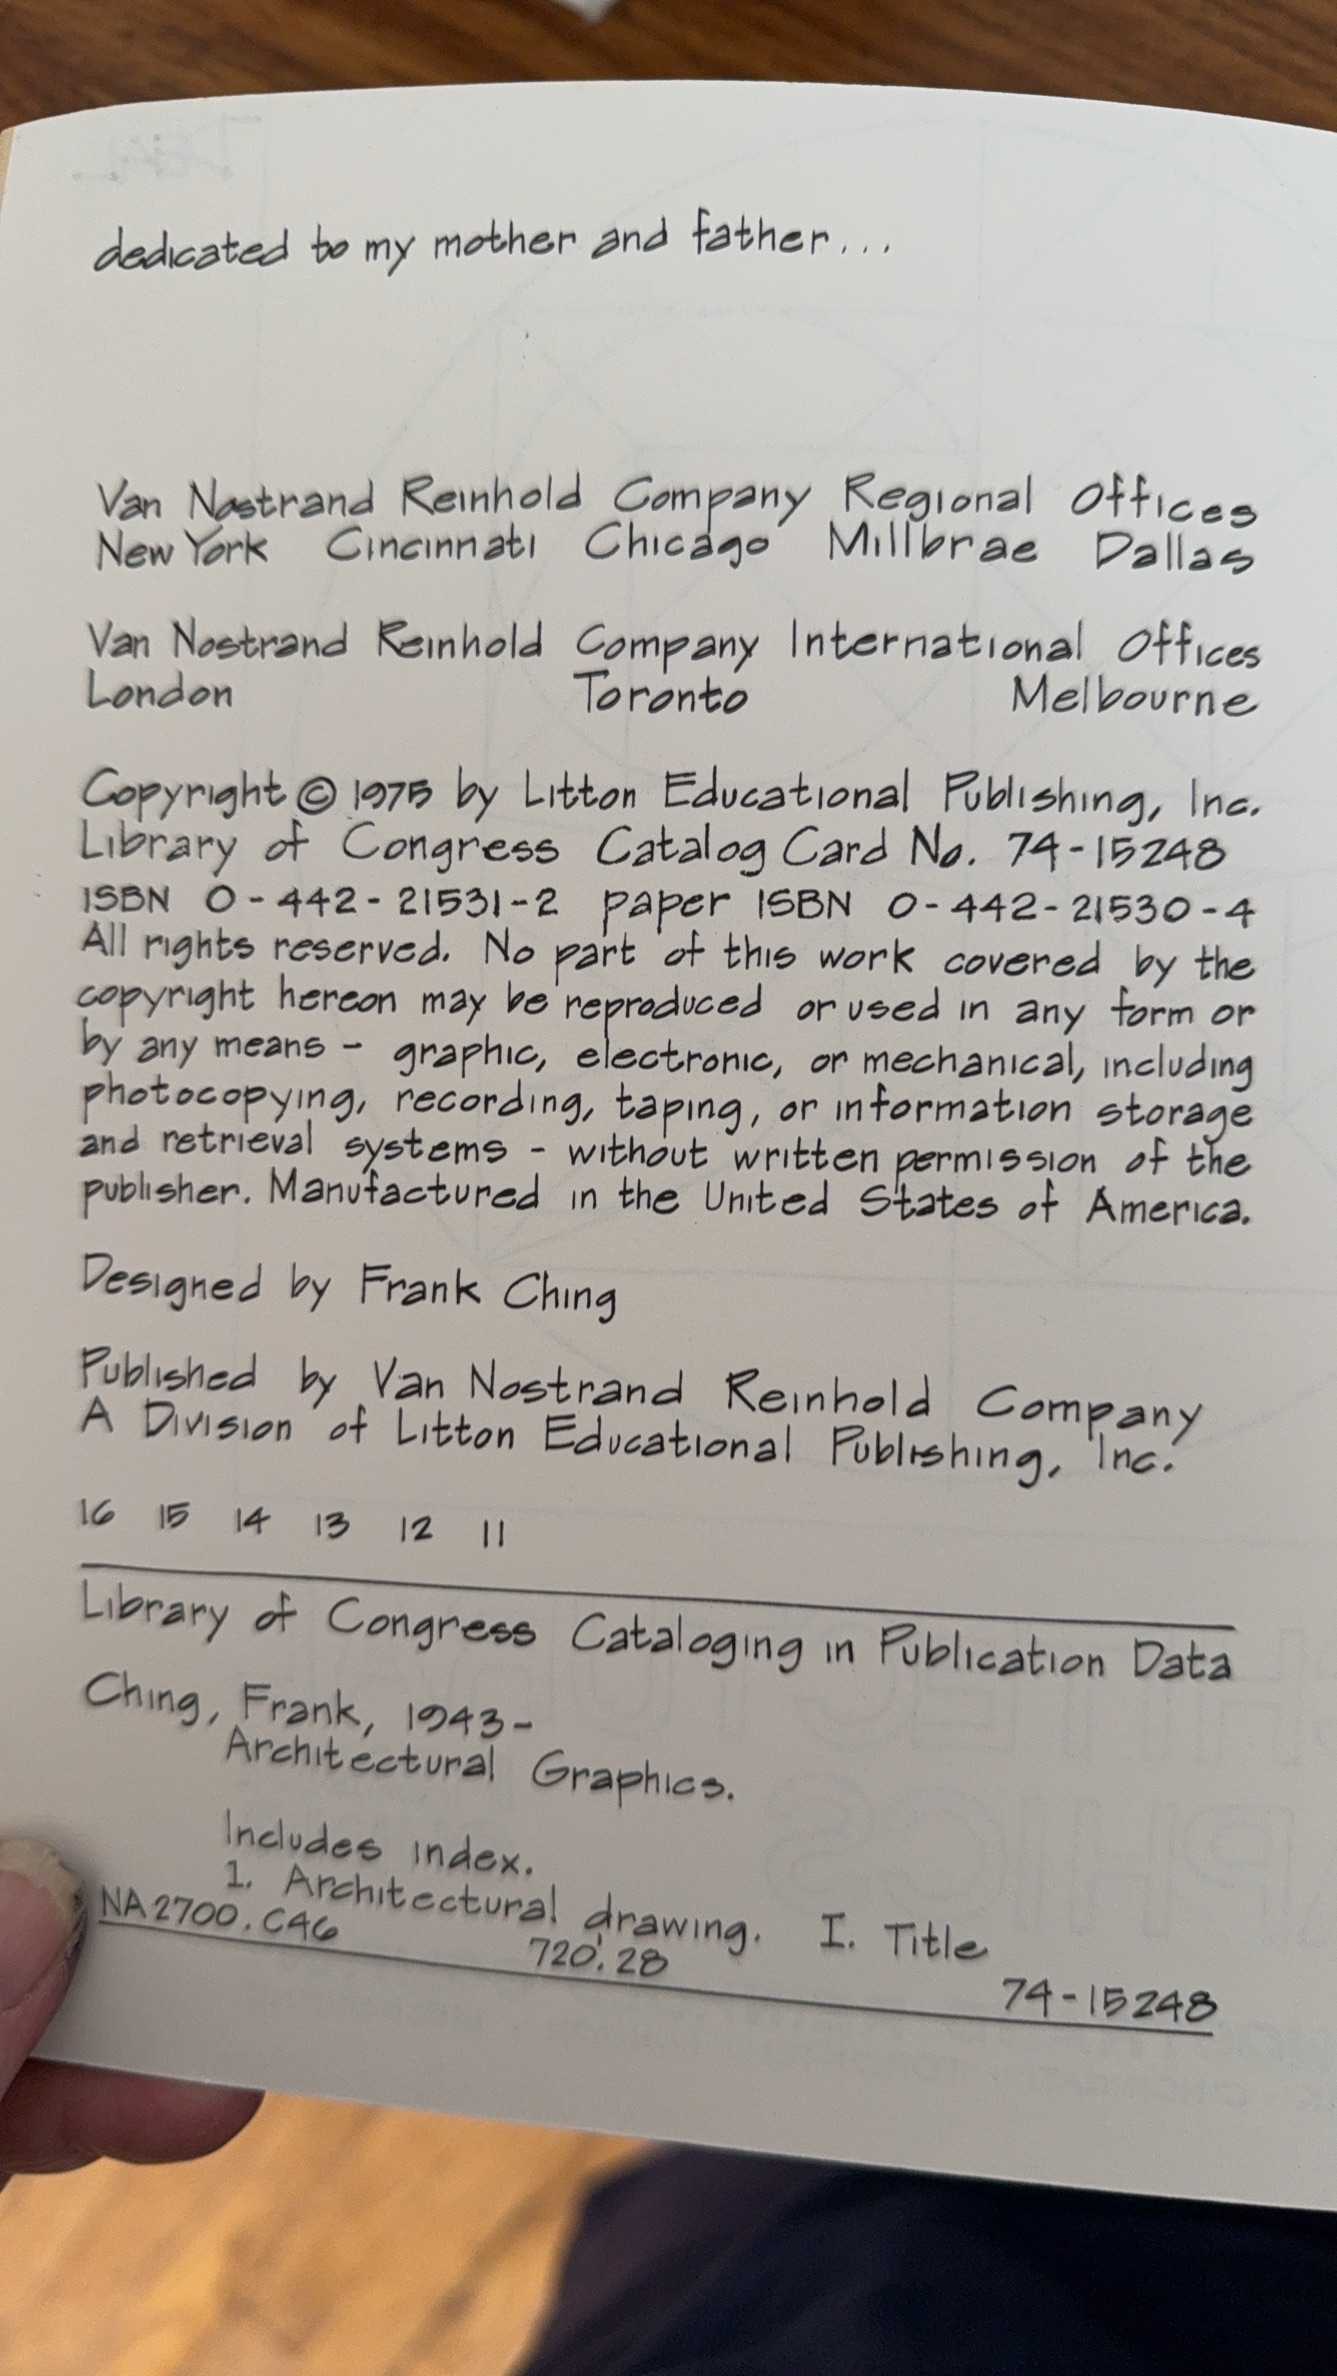 dedicated to my mother and father...
Van Nostrand Reinhold Company Regional Offices
New York Cincinnati Chicago Millbrae Dallas
Van Nostrand Reinhold Company International Offices
London Toronto Melbourne
Copyright © 1975 by Litton Educational Publishing, Inc.
Library of Congress Catalog Card No. 74-15248
ISBN 0-442-21531-2 paper ISBN 0-442-21530-4
All rights reserved. No part of this work covered by the
copyright hereon may be reproduced or used in any form or
by any means - graphic, electronic, or mechanical, including
photocopying, recording, taping, or information storage
and retrieval systems - without written permission of the
publisher. Manufactured in the United States of America.
Designed by Frank Ching
Published by Van Nostrand Reinhold Company
A Division of Litton Educational Publishing, Inc.
16 15 14 13 12 11
Library of Congress Cataloging in Publication Data
Ching, Frank, 1943-
Architectural Graphics.
Includes index.
1. Architectural drawing. I. Title
NA2700.C46 720'.28 74-15248